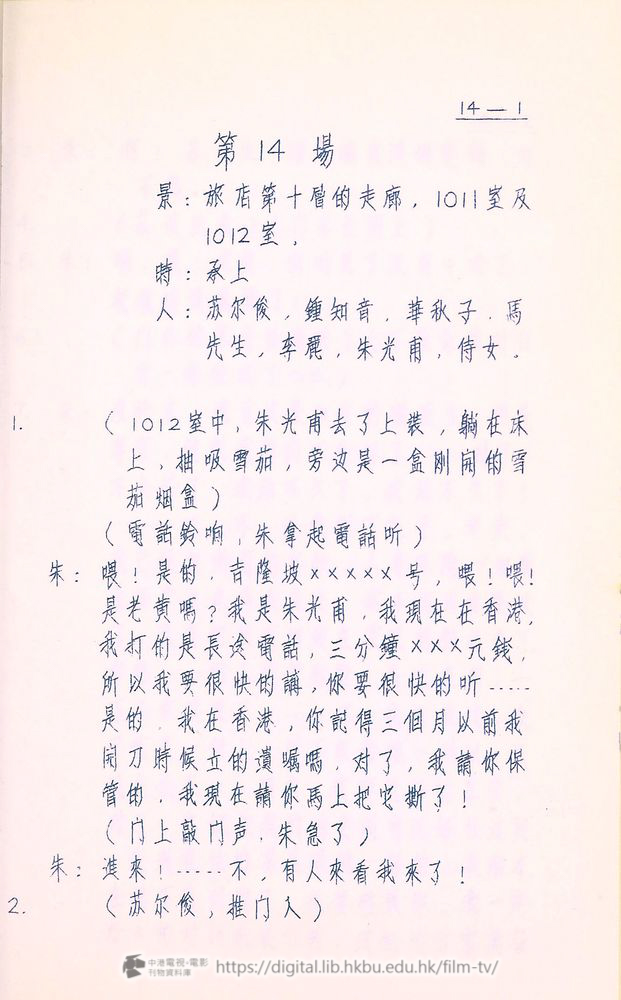 14 — 1
第 14 場
景：旅店第十層的走廊，1011室及
1012室。
時：承上
人：苏尔俊，鍾知音，華秋子，馬
先生，李麗，朱光甫，侍女。
1. （1012室中，朱光甫去了上裝，躺在床
上，抽吸雪茄，旁边是一盒刚開的雪
茄烟盒）
（電話鈴响，朱拿起電話听）
朱：喂！是的，吉隆坡×××××号，喂！喂！
是老黄嗎？我是朱光甫，我現在在香港，
我打的是長途電話，三分鐘×××元錢，
所以我要很快的講，你要很快的听……
是的，我在香港，你記得三個月以前我
開刀時候立的遺嘱嗎，对了，我請你保
管的，我現在請你馬上把它撕了！
（门上敲门声，朱急了）
朱：進來！……不，有人來看我來了！
2. （苏尔俊，推门入）
中港電視·電影
刊物資料庫
https://digital.lib.hkbu.edu.hk/film-tv/